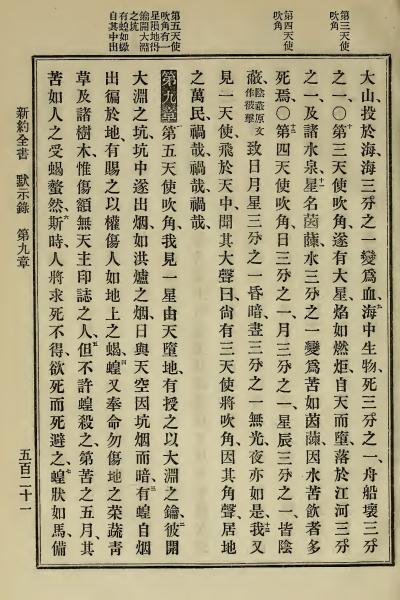 第三天使
吹角
第四天使
吹角
第五天使
吹角有一
星隕地得
鑰開大淵
之坑
有蝗如蠍
自其中出
大山投於海、海三分之一變爲血、海中生物、死三分之一、舟船壞三分
之一、○第三天使吹角、遂有大星、焰如燃炬、自天而墮、落於江河三分
之一、及諸水泉、十一星名茵蔯、水三分之一變爲苦如茵蔯、因水苦、飲者多
死焉、○十二第四天使吹角、日三分之一、月三分之一、星辰三分之一、皆陰
蔽、陰蔽原文作被擊致日月星三分之一昏暗、晝三分之一無光、夜亦如是、十三我又
見一天使飛於天中、聞其大聲曰、尚有三天使將吹角、因其角聲、居地
之萬民、禍哉、禍哉、禍哉、
第九章 第五天使吹角、我見一星由天墮地、有授之以大淵之鑰、二彼開
大淵之坑、坑中遂出烟、如洪爐之烟、日與天空、因坑烟而暗、三有蝗自烟
出、徧於地、有賜之以權傷人、如地上之蝎、四蝗又奉命、勿傷地之菜蔬青
草、及諸樹木、惟傷額無天主印誌之人、五但不許蝗殺之、第苦之五月、其
苦如人之受蝎螫然、六斯時、人將求死不得、欲死而死避之、七蝗狀如馬備
新約全書 默示錄 第九章
五百二十一